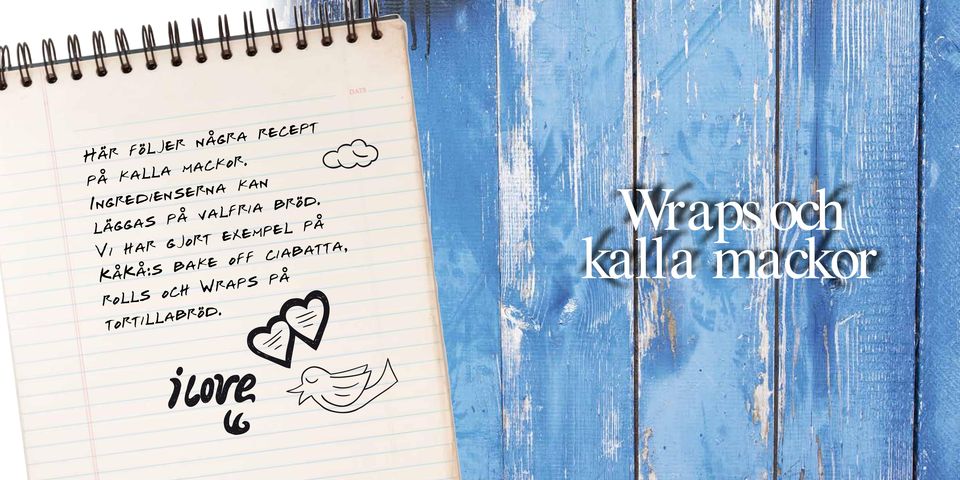 DATE
HÄR FÖLJER NÅGRA RECEPT
PÅ KALLA MACKOR.
INGREDIENSERNA KAN
LÄGGAS PÅ VALFRIA BRÖD.
VI HAR GJORT EXEMPEL PÅ
KÅKÅ:S BAKE OFF CIABATTA,
ROLLS OCH WRAPS PÅ
TORTILLABRÖD.
i Love
Wraps och
kalla mackor